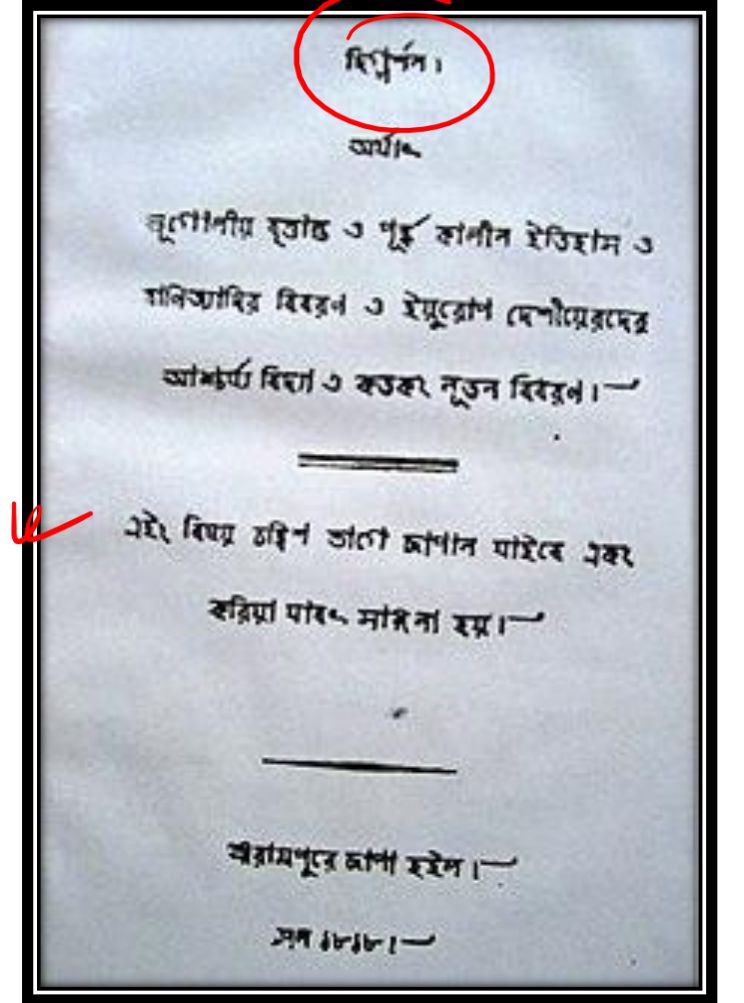 দিগ্দর্শন।
অর্থাৎ
ভূগোলীয় বৃত্তান্ত ও পূর্ব্ব কালীন ইতিহাস ও
বানিজ্যাদির বিবরণ ও ইয়ুরোপ দেশীয়েরদের
আশ্চর্য্য বিদ্যা ও কতকং নূতন বিবরণ।
এইং বিষয় ভাগে ছাপান যাইবে এবং
করিয়া যাবৎ সাঙ্গ না হয়।
শ্রীরামপুরে ছাপা হইল।
সন ১৮১৮।